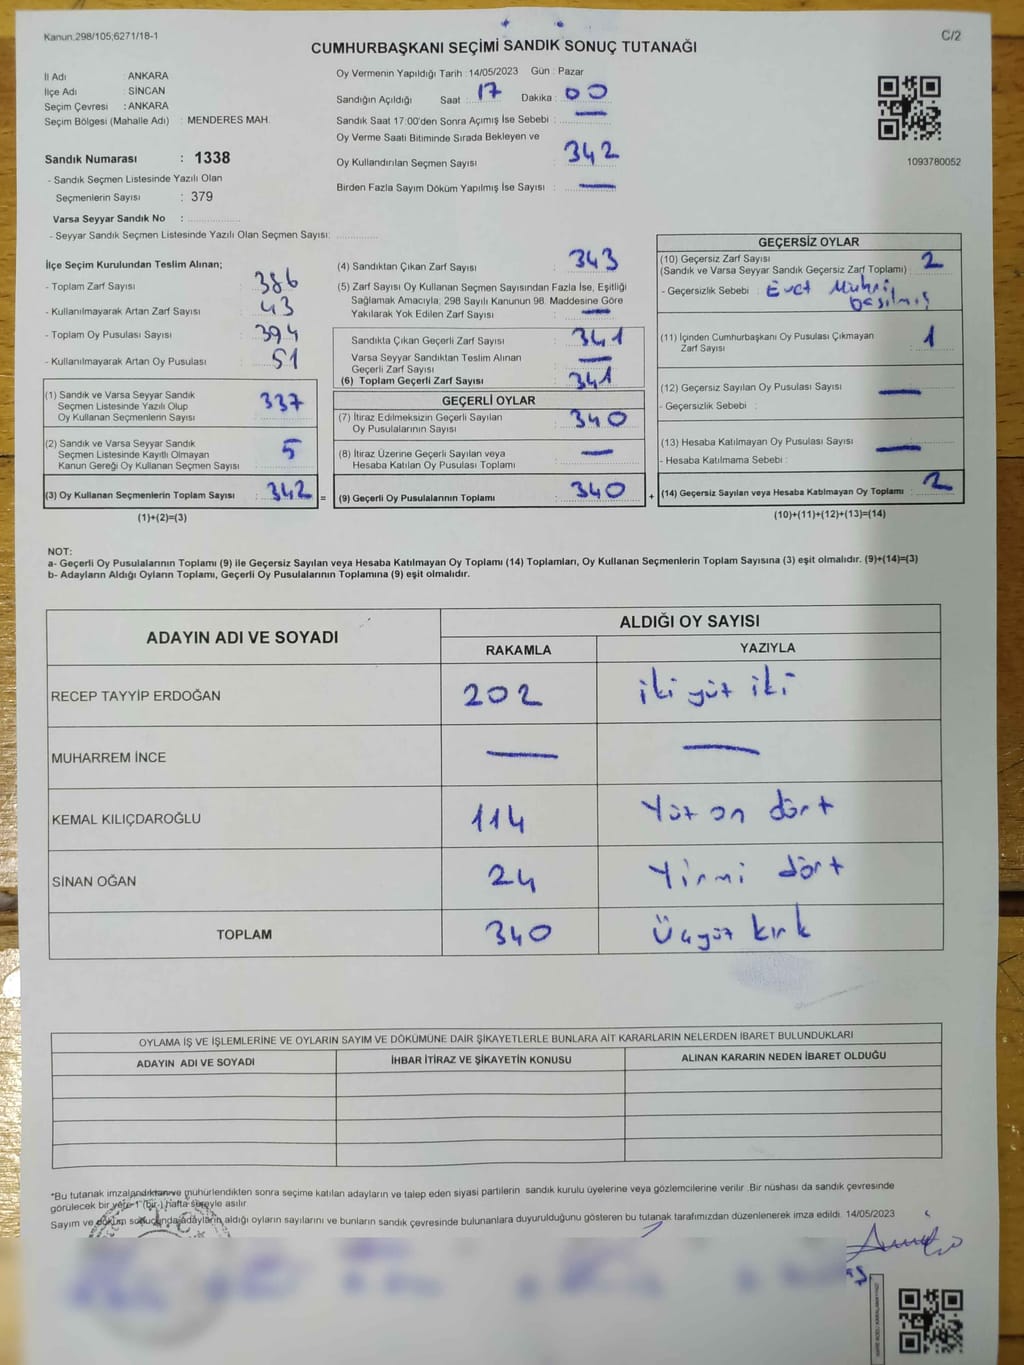 Kanun.298/105;6271/18-1
C/2
CUMHURBAŞKANI SEÇİMİ SANDIK SONUÇ TUTANAĞI
İl Adı : ANKARA
İlçe Adı : SİNCAN
Seçim Çevresi : ANKARA
Seçim Bölgesi (Mahalle Adı) : MENDERES MAH.
Sandık Numarası : 1338
- Sandık Seçmen Listesinde Yazılı Olan
Seçmenlerin Sayısı : 379
Varsa Seyyar Sandık No :
- Seyyar Sandık Seçmen Listesinde Yazılı Olan Seçmen Sayısı:
Oy Vermenin Yapıldığı Tarih : 14/05/2023 Gün : Pazar
Sandığın Açıldığı Saat : 17 Dakika : 00
Sandık Saat 17:00'den Sonra Açımış İse Sebebi : —
Oy Verme Saati Bitiminde Sırada Bekleyen ve
Oy Kullandırılan Seçmen Sayısı : 342
Birden Fazla Sayım Döküm Yapılmış İse Sayısı : —
1093780052
İlçe Seçim Kurulundan Teslim Alınan;
- Toplam Zarf Sayısı : 386
- Kullanılmayarak Artan Zarf Sayısı : 43
- Toplam Oy Pusulası Sayısı : 394
- Kullanılmayarak Artan Oy Pusulası : 51
(1) Sandık ve Varsa Seyyar Sandık
Seçmen Listesinde Yazılı Olup
Oy Kullanan Seçmenlerin Sayısı : 337
(2) Sandık ve Varsa Seyyar Sandık
Seçmen Listesinde Kayıtlı Olmayan
Kanun Gereği Oy Kullanan Seçmen Sayısı : 5
(3) Oy Kullanan Seçmenlerin Toplam Sayısı : 342 =
(1)+(2)=(3)
(4) Sandıktan Çıkan Zarf Sayısı : 343
(5) Zarf Sayısı Oy Kullanan Seçmen Sayısından Fazla İse, Eşitliği
Sağlamak Amacıyla, 298 Sayılı Kanunun 98. Maddesine Göre
Yakılarak Yok Edilen Zarf Sayısı : —
Sandıkta Çıkan Geçerli Zarf Sayısı : 341
Varsa Seyyar Sandıktan Teslim Alınan
Geçerli Zarf Sayısı : —
(6) Toplam Geçerli Zarf Sayısı : 341
GEÇERLİ OYLAR
(7) İtiraz Edilmeksizin Geçerli Sayılan
Oy Pusulalarının Sayısı : 340
(8) İtiraz Üzerine Geçerli Sayılan veya
Hesaba Katılan Oy Pusulası Toplamı : —
(9) Geçerli Oy Pusulalarının Toplamı : 340 +
GEÇERSİZ OYLAR
(10) Geçersiz Zarf Sayısı
(Sandık ve Varsa Seyyar Sandık Geçersiz Zarf Toplamı) : 2
- Geçersizlik Sebebi : Evet Mührü
basılmış
(11) İçinden Cumhurbaşkanı Oy Pusulası Çıkmayan
Zarf Sayısı : 1
(12) Geçersiz Sayılan Oy Pusulası Sayısı : —
- Geçersizlik Sebebi :
(13) Hesaba Katılmayan Oy Pusulası Sayısı : —
- Hesaba Katılmama Sebebi :
(14) Geçersiz Sayılan veya Hesaba Katılmayan Oy Toplamı : 2
(10)+(11)+(12)+(13)=(14)
NOT:
a- Geçerli Oy Pusulalarının Toplamı (9) ile Geçersiz Sayılan veya Hesaba Katılmayan Oy Toplamı (14) Toplamları, Oy Kullanan Seçmenlerin Toplam Sayısına (3) eşit olmalıdır. (9)+(14)=(3)
b- Adayların Aldığı Oyların Toplamı, Geçerli Oy Pusulalarının Toplamına (9) eşit olmalıdır.
ADAYIN ADI VE SOYADI
ALDIĞI OY SAYISI
RAKAMLA YAZIYLA
RECEP TAYYİP ERDOĞAN 202 iki yüz iki
MUHARREM İNCE — —
KEMAL KILIÇDAROĞLU 114 Yüz on dört
SİNAN OĞAN 24 Yirmi dört
TOPLAM 340 Üçyüz kırk
OYLAMA İŞ VE İŞLEMLERİNE VE OYLARIN SAYIM VE DÖKÜMÜNE DAİR ŞİKAYETLERLE BUNLARA AİT KARARLARIN NELERDEN İBARET BULUNDUKLARI
ADAYIN ADI VE SOYADI İHBAR İTİRAZ VE ŞİKAYETİN KONUSU ALINAN KARARIN NEDEN İBARET OLDUĞU
*Bu tutanak imzalandıktan ve mühürlendikten sonra seçime katılan adayların ve talep eden siyasi partilerin sandık kurulu üyelerine veya gözlemcilerine verilir. Bir nüshası da sandık çevresinde
görülecek bir yere 1 (bir) hafta süreyle asılır.
Sayım ve döküm sonucunda adayların aldığı oyların sayılarını ve bunların sandık çevresinde bulunanlara duyurulduğunu gösteren bu tutanak tarafımızdan düzenlenerek imza edildi. 14/05/2023